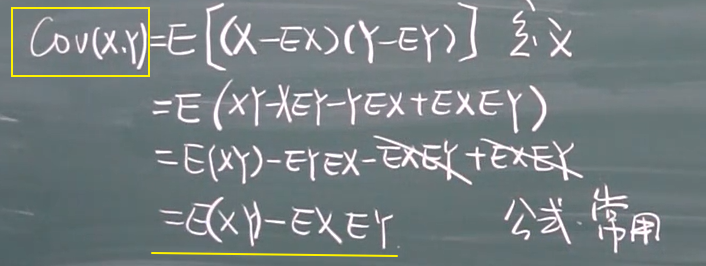 Cov(X,Y)=E[(X-EX)(Y-EY)] 定义
=E(XY-XEY-YEX+EXEY)
=E(XY)-EYEX-EXEY+EXEY
=E(XY)-EXEY 公式.常用